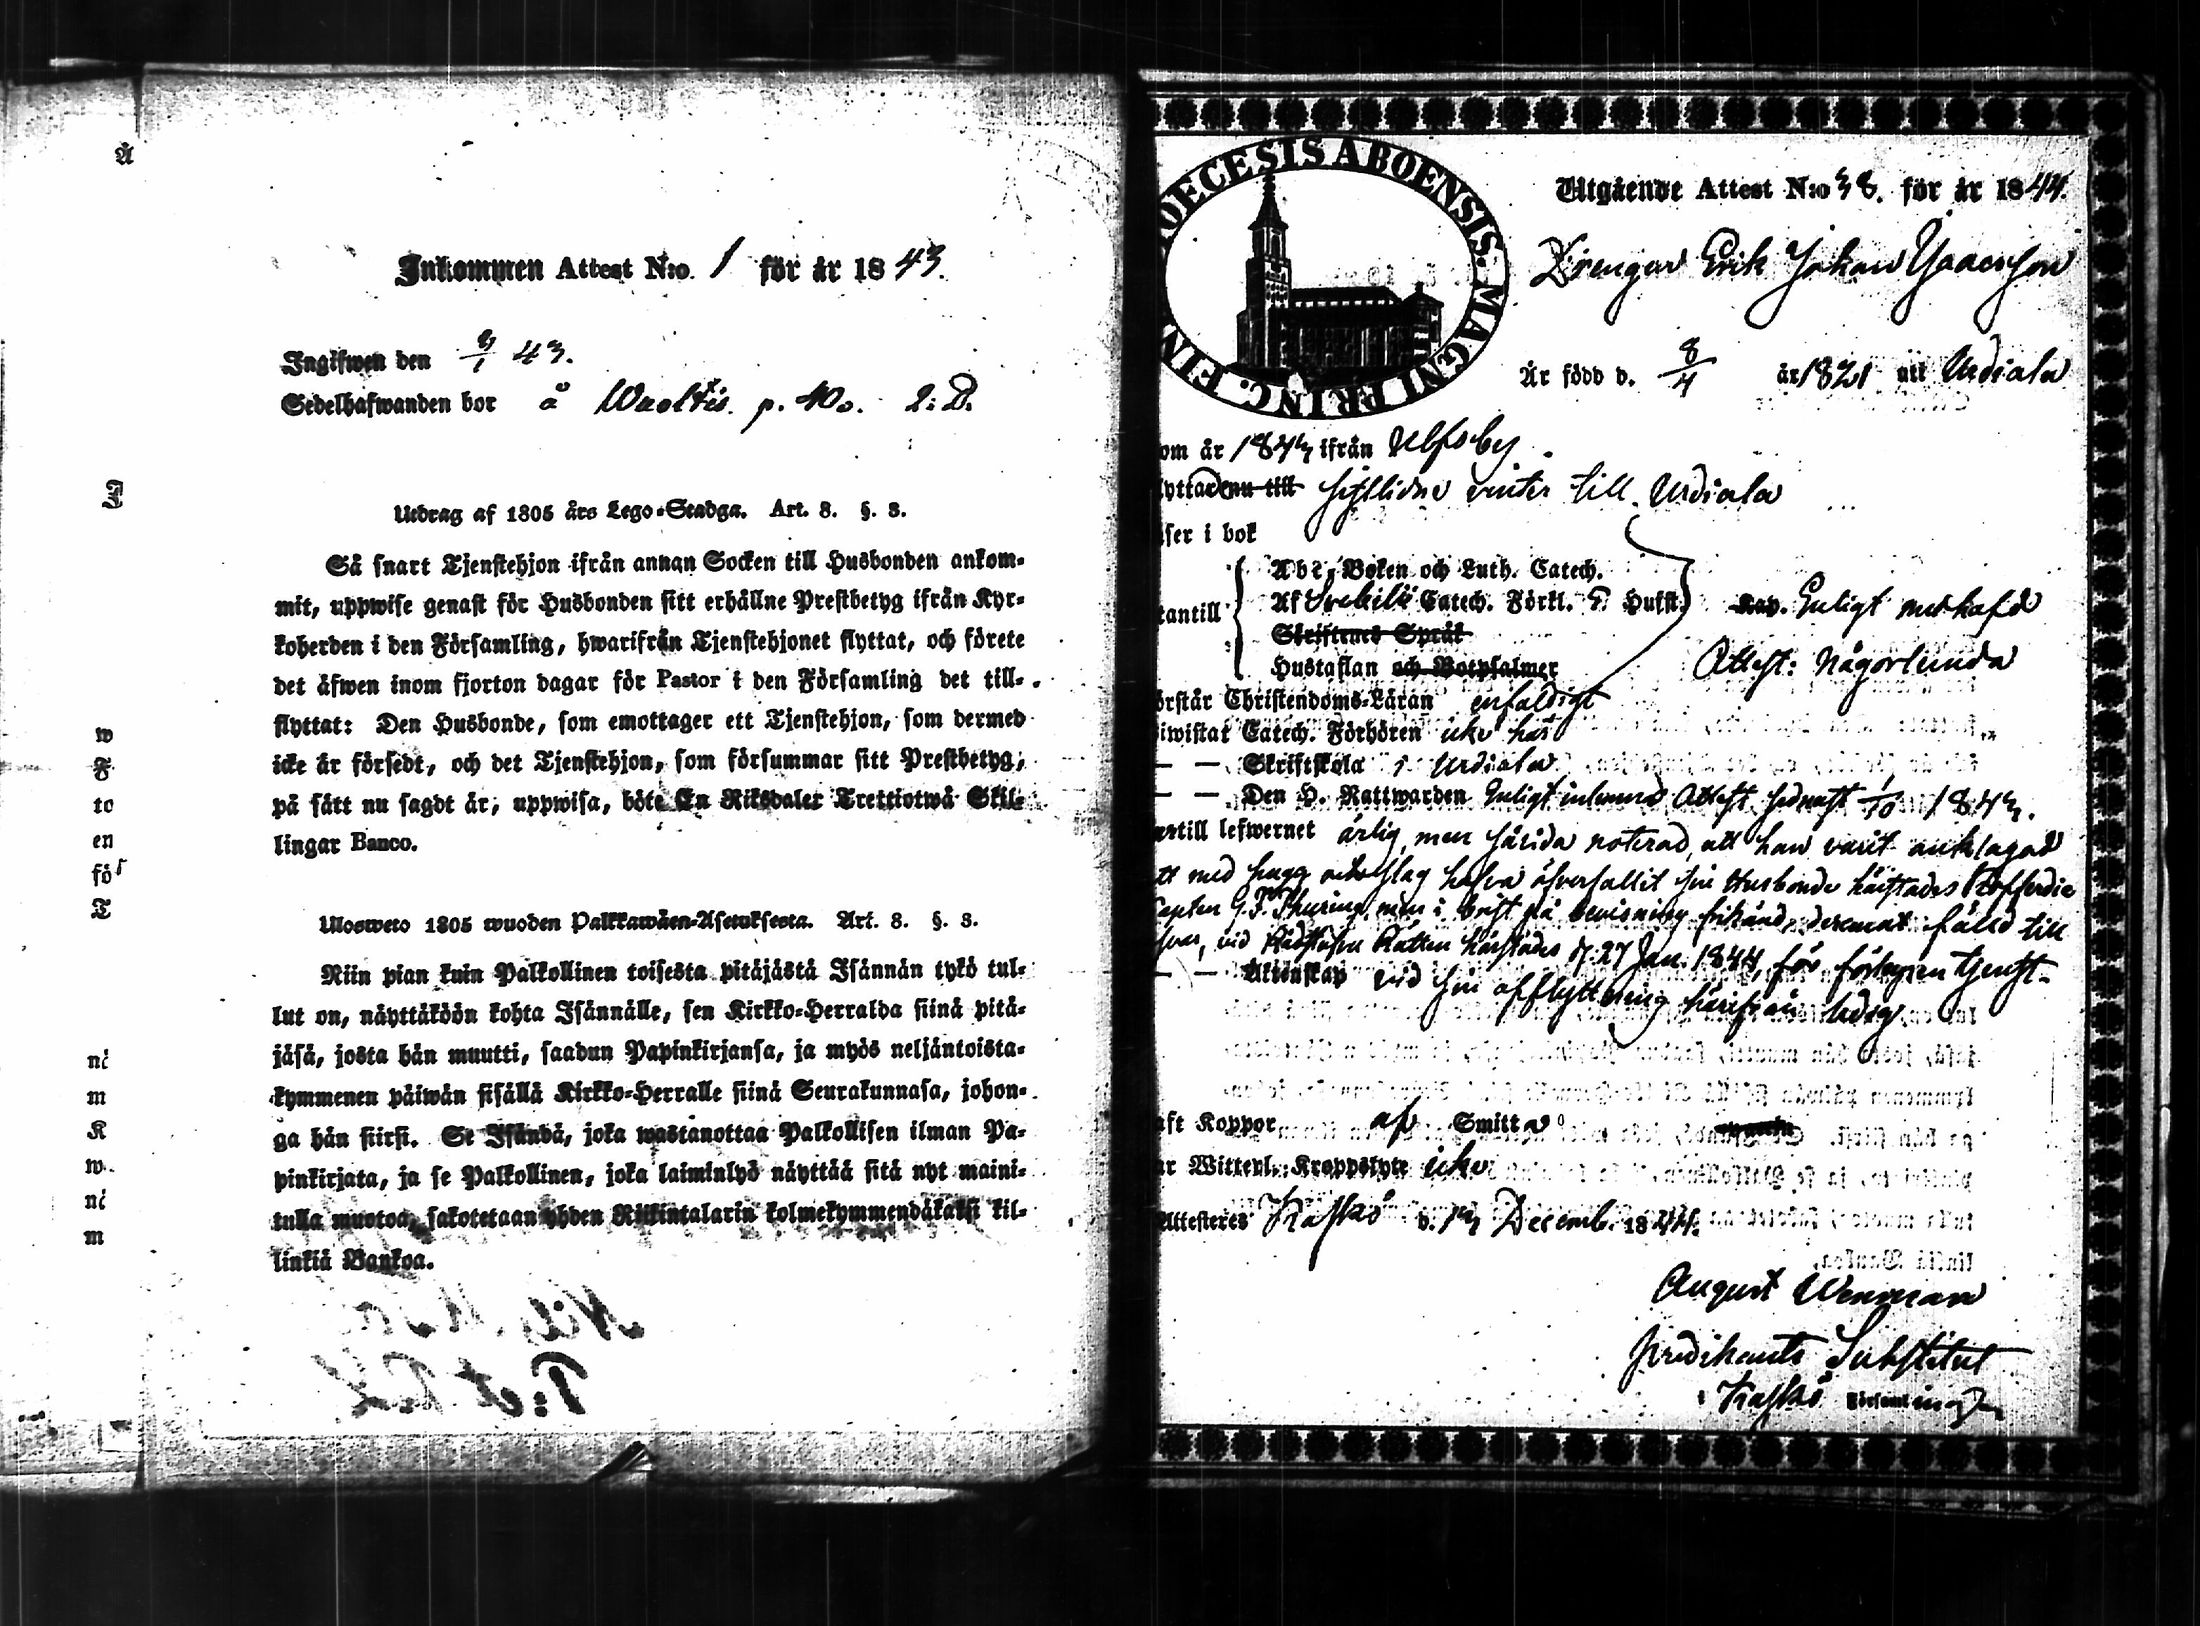 Å
I
w
F
to
en
fö
T
ni
m
K
w
ni
m
Inkommen Attest N:o 1 för år 1843.
Ingifwen den 9/1 43.
Sedelhafwanden bor å Waltis. p. 40. 2:D.
Utdrag af 1805 års Lego-Stadga. Art. 8. §. 3.
Så snart Tjenstehjon ifrån annan Socken till Husbonden ankom-
mit, uppwise genast för Husbonden sitt erhållne Prestbetyg ifrån Kyr-
koherden i den Församling, hwarifrån Tjenstehjonet flyttat, och förete
det äfwen inom fjorton dagar för Pastor i den Församling det till-
flyttat: Den Husbonde, som emottager ett Tjenstehjon, som dermed
icke är försedt, och det Tjenstehjon, som försummar sitt Prestbetyg,
på sätt nu sagdt är, uppwisa, böte En Riksdaler Trettiotwå Skil-
lingar Banco.
Ulosweto 1805 wuoden Palkkawäen-Asetuksesta. Art. 8. §. 3.
Niin pian kuin Palkollinen toisesta pitäjästä Isännän tykö tul-
lut on, näyttäköön kohta Isännälle, sen Kirkko-Herralda siinä pitä-
jäsä, josta hän muutti, saadun Papinkirjansa, ja myös neljäntoista-
kymmenen päiwän sisällä Kirkko-Herralle siinä Seurakunnasa, johon-
ga hän siirsi. Se Isändä, joka wastanottaa Palkollisen ilman Pa-
pinkirjata, ja se Palkollinen, joka laiminlyö näyttää sitä nyt maini-
tulla muotoa, sakotetaan yhden Riikintalarin kolmekymmendäkaksi kil-
linkiä Bankoa.
DIOECESIS ABOENSIS. MAGNI PRINC. FIN
Utgående Attest N:o 38. för år 1844.
Drengen Erik Johan Isacsson
Är född d. 8/4 år 1821 uti Urdiala
om år 1843 ifrån Ulfsby.
lyttade nu till sistlidne vinter till Urdiala
äser i bok
tantill
Abc-Boken och Luth. Catech.
Af Svebilii Catech. Förkl. 5 Hufst.
Skriftenes Språk
Hustaflan och Botpsalmer
Enligt medhafd
Attest: någorlunda
örstår Christendoms-Läran enfaldigt
iwistat Catech. Förhören icke här
— — Skriftskola i Urdiala
— — Den H. Nattwarden Enligt inlemnad Attest sednast 1/10 1843.
ertill lefwernet ärlig, men härida noterad, att han varit anklagad
att med hugg och slag hafva öfverfallit sin Husbonde härstädes Kofferdie
Capten G. F. Thuring, men i brist på bevisning frikänd, deremot fälld till
vid Rådstufvu Rätten härstädes d. 27 Jan. 1844, för förlupen tjenst.
— — Äktenskap vid sin afflyttning härifrån ledig
aft Koppor af Smitta
ar Wittert. Kroppslyte icke
Attesteres Kaskö d. 13 Decemb. 1844.
August Wenman
predikants Substitut
i Kaskö Församling